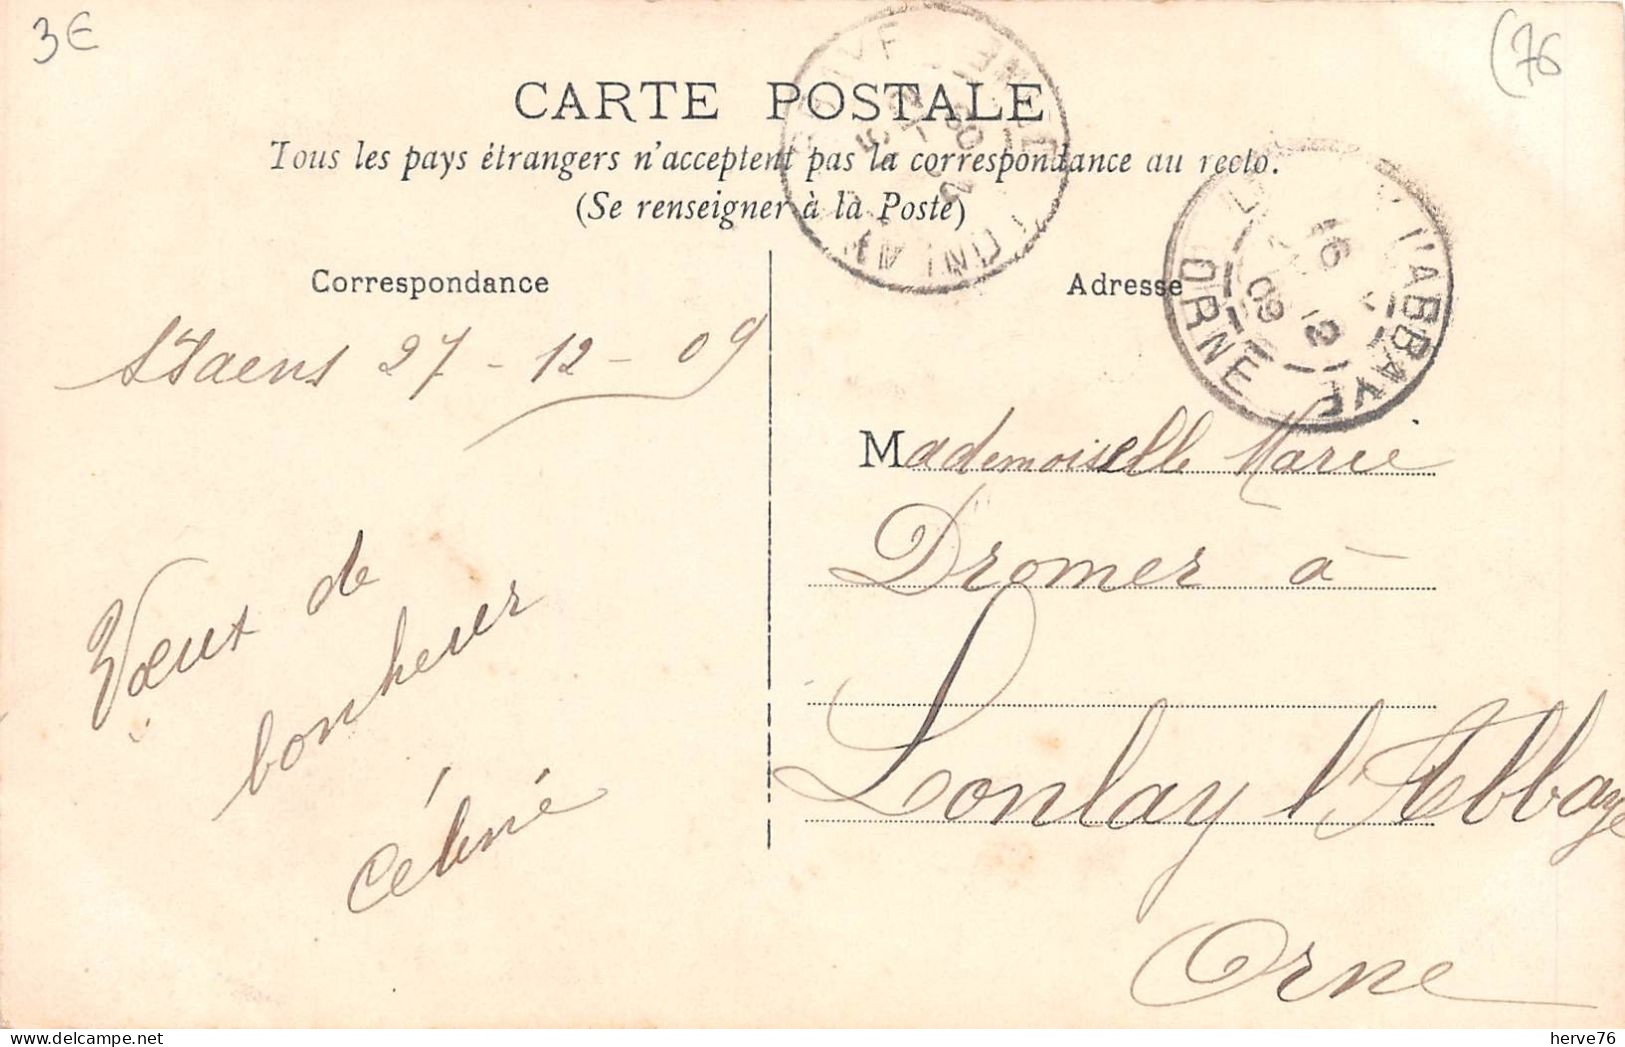 3€
(76
CARTE POSTALE
Tous les pays étrangers n'acceptent pas la correspondance au recto.
(Se renseigner à la Poste)
Correspondance
Adresse
27-12-09
Vœux de
bonheur
Céline
Mademoiselle Marie
Dromer à
Lonlay l'Abbaye
Orne
L'ABBAYE
ORNE
herve76